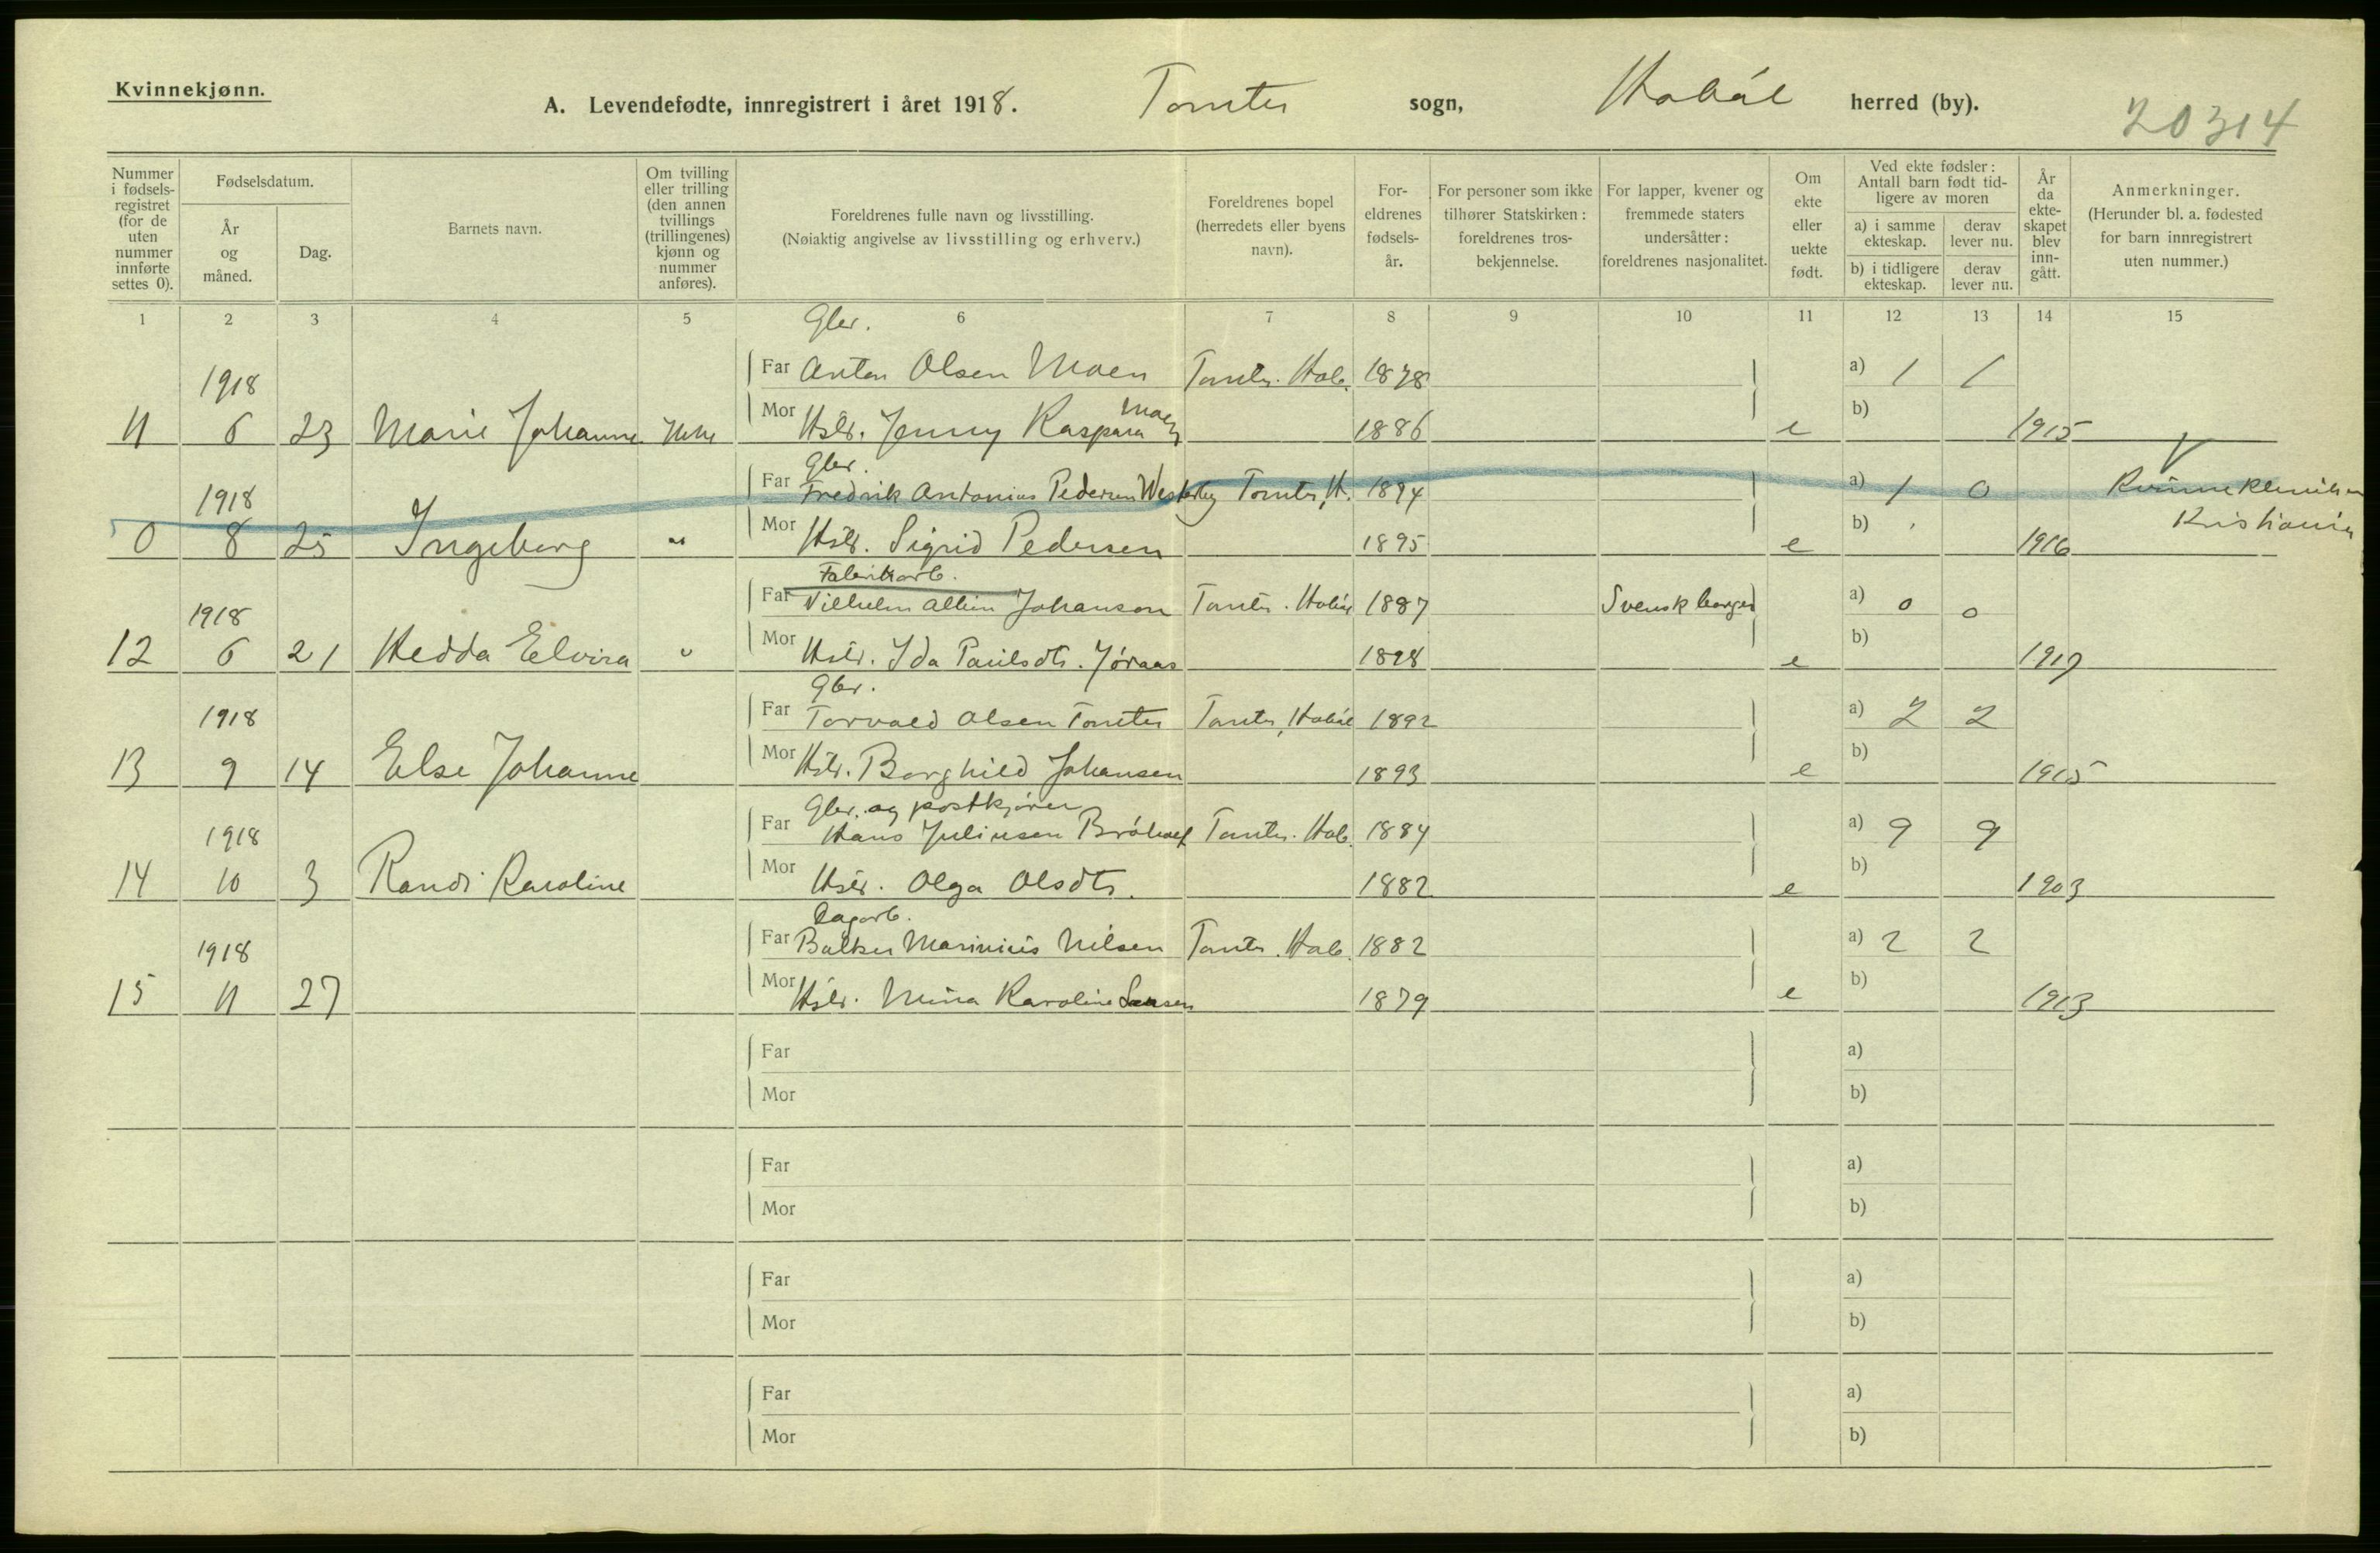 Kvinnekjønn.
A. Levendefødte, innregistrert i året 1918. Tomter sogn, Hobøl herred (by).
20314
Nummer i fødsels-registret (for de uten nummer innførte settes 0).
Fødselsdatum.
År og måned.
Dag.
Barnets navn.
Om tvilling eller trilling (den annen tvillings (trillingenes) kjønn og nummer anføres).
Foreldrenes fulle navn og livsstilling.
(Nøiaktig angivelse av livsstilling og erhverv.)
Foreldrenes bopel (herredets eller byens navn).
For-eldrenes fødsels-år.
For personer som ikke tilhører Statskirken: foreldrenes tros-bekjennelse.
For lapper, kvener og fremmede staters undersåtter: foreldrenes nasjonalitet.
Om ekte eller uekte født.
Ved ekte fødsler: Antall barn født tid-ligere av moren
a) i samme ekteskap. derav lever nu.
b) i tidligere ekteskap. derav lever nu.
År da ekte-skapet blev inn-gått.
Anmerkninger.
(Herunder bl. a. fødested for barn innregistrert uten nummer.)
1 2 3 4 5 6 7 8 9 10 11 12 13 14 15
Gbr.
1918 Far Anton Olsen Moen Tomter. Hob. 1878 a) 1 1
11 6 23 Marie Johanne Mor Hstr. Jenny Kaspara Moen 1886 e b) 1915
Gbr.
1918 Far Fredrik Antonius Pedersen Westerby Tomter, H. 1894 a) 1 0 Kvinneklinikken
0 8 25 Ingeborg " Mor Hstr. Sigrid Pedersen 1895 e b) 1916 Kristiania
Fabrikarb.
1918 Far Vilhelm Albin Johanson Tomter. Hobøl 1887 Svensk borger a) 0 0
12 6 21 Hedda Elvira " Mor Hstr. Ida Paulsdtr. Jøraas 1898 e b) 1917
Gbr.
1918 Far Torvald Olsen Tomter Tomter, Hobøl 1892 a) 2 2
13 9 14 Else Johanne Mor Hstr. Borghild Johansen 1893 e b) 1915
Gbr. og postkjører
1918 Far Hans Juliusen Tomter. Hob. 1884 a) 9 9
14 10 3 Randi Karoline Mor Hstr. Olga Olsdtr. 1882 e b) 1903
Dagarb.
1918 Far Marinius Nilsen Tomter. Hob. 1882 a) 2 2
15 11 27 Mor Hstr. Mina Karoline 1879 e b) 1913
Far a)
Mor b)
Far a)
Mor b)
Far a)
Mor b)
Far a)
Mor b)